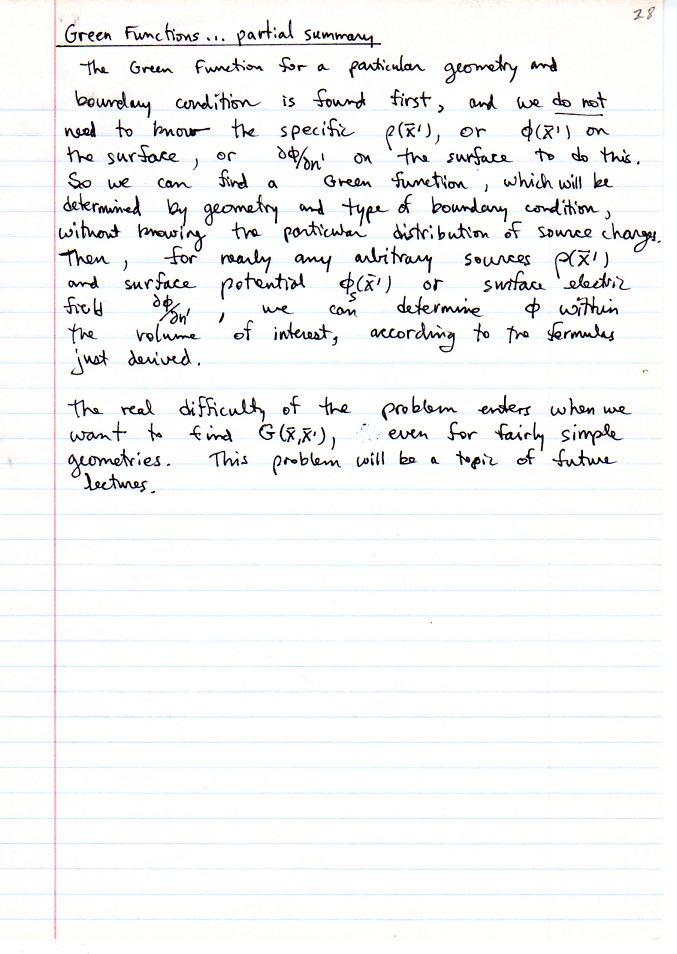 28
Green Functions... partial summary
The Green Function for a particular geometry and
boundary condition is found first, and we do not
need to know the specific ρ(x̄'), or ϕ(x̄') on
the surface, or ∂ϕ/∂n' on the surface to do this.
So we can find a Green function, which will be
determined by geometry and type of boundary condition,
without knowing the particular distribution of source charges.
Then, for nearly any arbitrary sources ρ(x̄')
and surface potential ϕₛ(x̄') or surface electric
field ∂ϕ/∂n', we can determine ϕ within
the volume of interest, according to the formulas
just derived.
The real difficulty of the problem enters when we
want to find G(x̄,x̄'), even for fairly simple
geometries. This problem will be a topic of future
lectures.